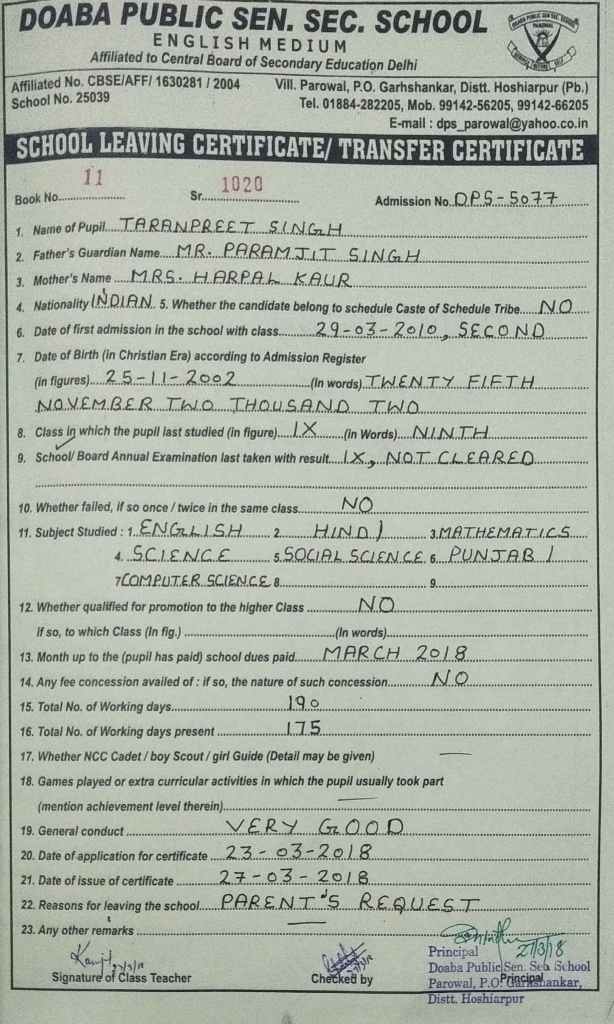 DOABA PUBLIC SEN. SEC. SCHOOL
ENGLISH MEDIUM
Affiliated to Central Board of Secondary Education Delhi
Affiliated No. CBSE/AFF/ 1630281 / 2004 Vill. Parowal, P.O. Garhshankar, Distt. Hoshiarpur (Pb.)
School No. 25039 Tel. 01884-282205, Mob. 99142-56205, 99142-66205
E-mail : dps_parowal@yahoo.co.in
SCHOOL LEAVING CERTIFICATE/ TRANSFER CERTIFICATE
Book No. 11 Sr. 1020 Admission No. DPS-5077
1. Name of Pupil TARANPREET SINGH
2. Father's Guardian Name MR. PARAMJIT SINGH
3. Mother's Name MRS. HARPAL KAUR
4. Nationality INDIAN 5. Whether the candidate belong to schedule Caste of Schedule Tribe NO
6. Date of first admission in the school with class 29-03-2010, SECOND
7. Date of Birth (in Christian Era) according to Admission Register
(in figures) 25-11-2002 (In words) TWENTY FIFTH
NOVEMBER TWO THOUSAND TWO
8. Class in which the pupil last studied (in figure) IX (in Words) NINTH
9. School/ Board Annual Examination last taken with result IX, NOT CLEARED
10. Whether failed, if so once / twice in the same class NO
11. Subject Studied : 1. ENGLISH 2. HINDI 3. MATHEMATICS
4. SCIENCE 5. SOCIAL SCIENCE 6. PUNJABI
7 COMPUTER SCIENCE 8 9.
12. Whether qualified for promotion to the higher Class NO
if so, to which Class (In fig.) (In words)
13. Month up to the (pupil has paid) school dues paid MARCH 2018
14. Any fee concession availed of : if so, the nature of such concession NO
15. Total No. of Working days 190
16. Total No. of Working days present 175
17. Whether NCC Cadet / boy Scout / girl Guide (Detail may be given)
18. Games played or extra curricular activities in which the pupil usually took part
(mention achievement level therein)
19. General conduct VERY GOOD
20. Date of application for certificate 23-03-2018
21. Date of issue of certificate 27-03-2018
22. Reasons for leaving the school PARENT'S REQUEST
23. Any other remarks
27/3/18
Principal
Signature of Class Teacher Checked by Principal
Doaba Public Sen. Sec. School
Parowal, P.O. Garhshankar,
Distt. Hoshiarpur